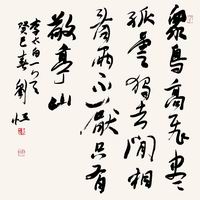 眾鳥高飛盡
孤雲獨去閒相
看兩不厭只有
敬亭山
李太白一
癸巳春 劉恆